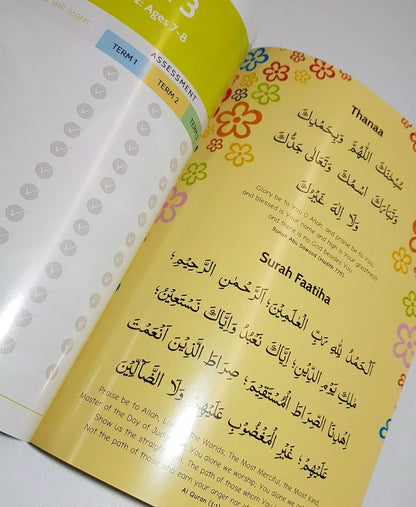 3
2: Ages 7-8
will learn
ASSESSMENT
TERM 1
TERM 2
TERM
Thanaa
سُبْحَانَكَ اللّٰهُمَّ وَبِحَمْدِكَ
وَتَبَارَكَ اسْمُكَ وَتَعَالٰى جَدُّكَ
وَلَا إِلٰهَ غَيْرُكَ
Glory be to You O Allah, and praise be to You
and blessed is Your name and high is Your greatness
and there is no God besides You
Sunan Abu Dawood (Hadith 775)
Surah Faatiha
اَلْحَمْدُ لِلّٰهِ رَبِّ الْعٰلَمِيْنَ؛ اَلرَّحْمٰنِ الرَّحِيْمِ؛
مٰلِكِ يَوْمِ الدِّيْنِ؛ اِيَّاكَ نَعْبُدُ وَاِيَّاكَ نَسْتَعِيْنُ؛
اِهْدِنَا الصِّرَاطَ الْمُسْتَقِيْمَ؛ صِرَاطَ الَّذِيْنَ اَنْعَمْتَ
عَلَيْهِمْ؛ غَيْرِ الْمَغْضُوْبِ عَلَيْهِمْ وَلَا الضَّآلِّيْنَ
Praise be to Allah, Lord of the Worlds. The Most Merciful, the Most Kind,
Master of the Day of Judgement. You alone we worship; You alone we
Show us the straight path. The path of those whom You
Not the path of those who earn your anger nor of
Al Quran (1:1)